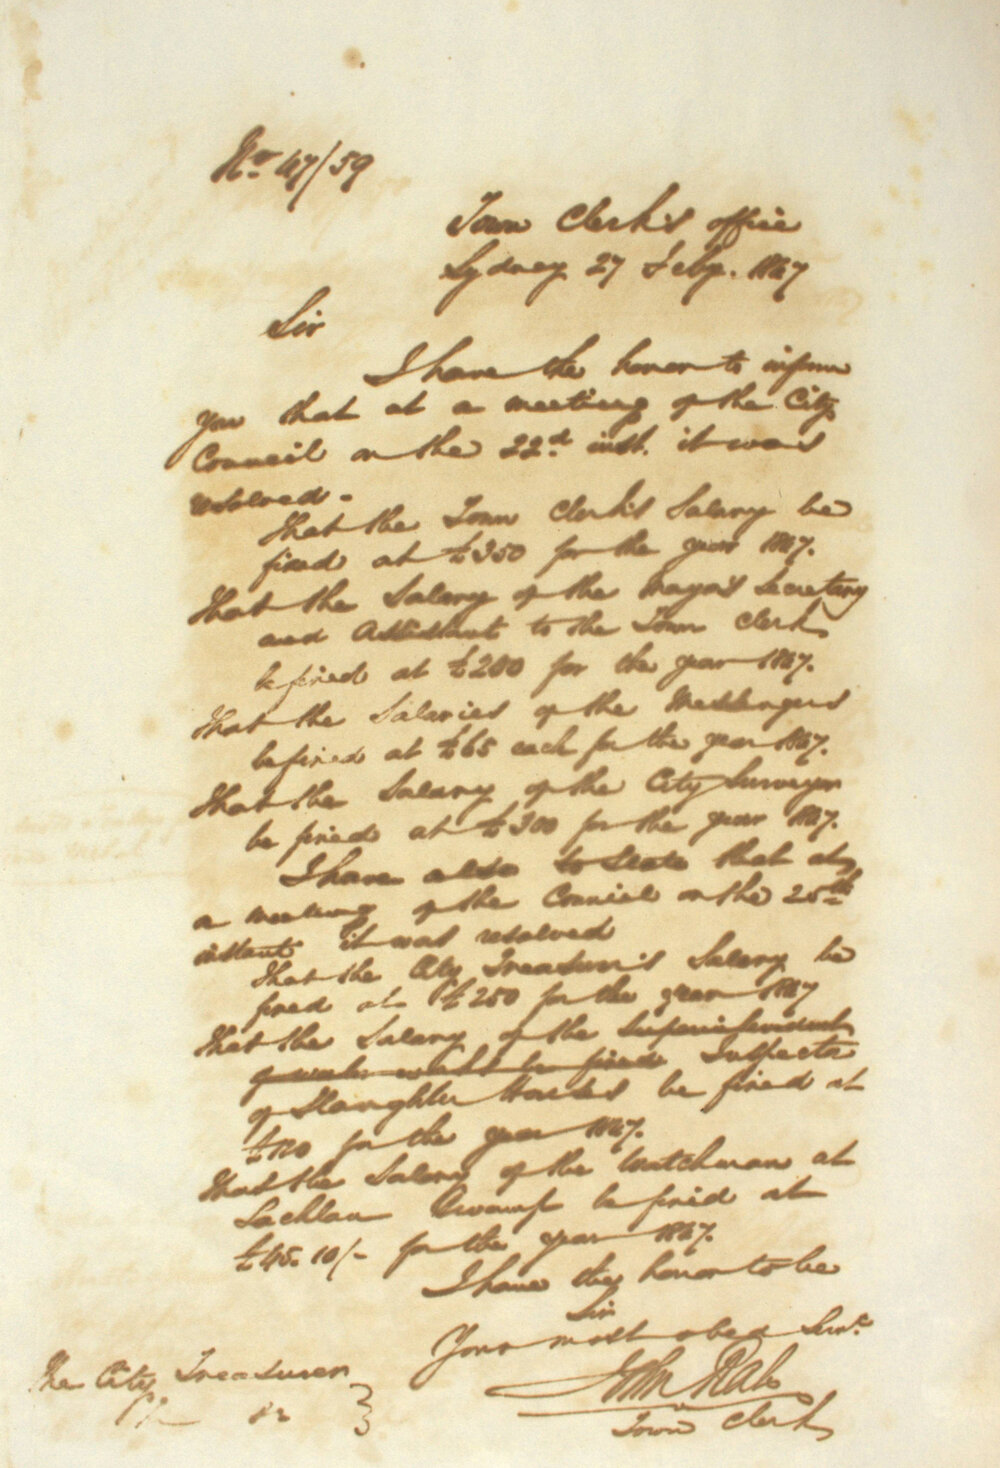 No. 47/59
Town Clerk's office
Sydney 27 Feby. 1847
Sir
I have the honor to inform
you that at a meeting of the City
Council on the 22d inst. it was
resolved -
That the Town Clerk's Salary be
fixed at £350 for the year 1847.
That the Salary of the Mayor's Secretary
and Assistant to the Town Clerk
be fixed at £200 for the year 1847.
That the Salaries of the Messengers
be fixed at £65 each for the year 1847.
That the Salary of the City Surveyor
be fixed at £300 for the year 1847.
I have also to state that at
a meeting of the Council on the 25th
instant it was resolved
That the City Treasurer's Salary be
fixed at £250 for the year 1847
That the Salary of the Superintendent
of works be fixed Inspector
of Slaughter Houses be fixed at
£120 for the year 1847.
That the Salary of the Watchman at
Lachlan Swamp be fixed at
£45.10/- for the year 1847.
I have the honor to be
Sir
Your most obed Servt.
John Rae
Town Clerk
The City Treasurer